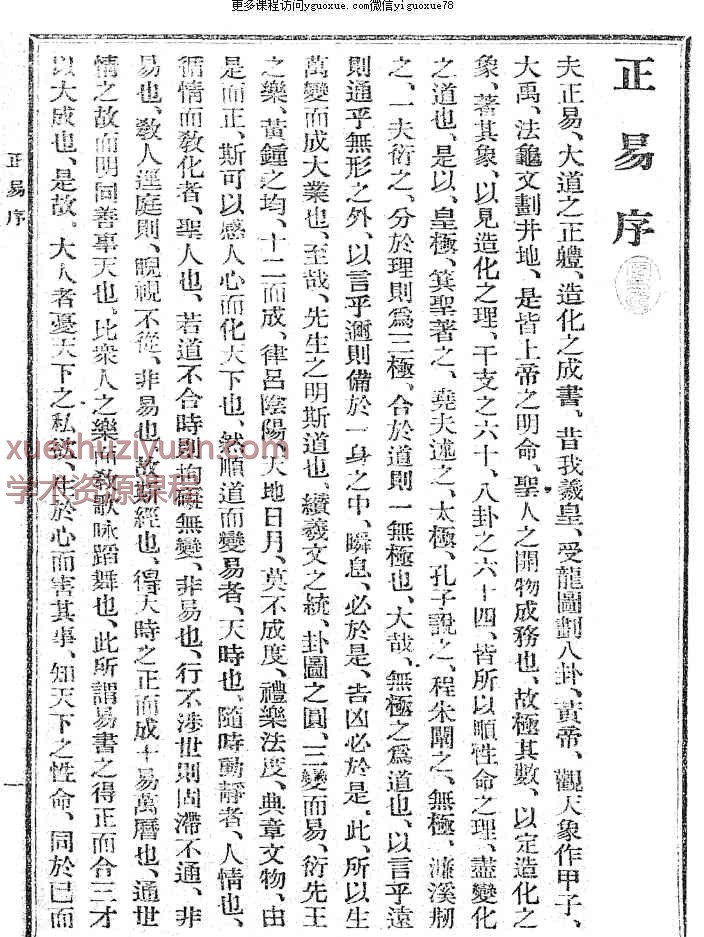 更多课程访问yguoxue.com微信yiguoxue78
正易序
夫正易、大道之正軆、造化之成書、昔我羲皇、受龍圖劃八卦、黃帝、觀天象作甲子、
大禹、法龜文劃井地、是皆上帝之明命、聖人之開物成務也、故極其數、以定造化之
象、著其象、以見造化之理、干支之六十、八卦之六十四、皆所以順性命之理、盡變化
之道也、是以、皇極、箕聖著之、堯夫述之、太極、孔子說之、程朱闡之、無極、濂溪刱
之、一夫衍之、分於理則爲三極、合於道則一無極也、大哉、無極之爲道也、以言乎遠
則通乎無形之外、以言乎邇則備於一身之中、瞬息、必於是、吉凶必於是、此、所以生
萬變而成大業也、至哉、先生之明斯道也、纘羲文之統、卦圖之圓、三變而易、衍先王
之樂、黃鍾之均、十二而成、律呂陰陽、天地日月、莫不成度、禮樂法度、典章文物、由
是而正、斯可以感人心而化天下也、然順道而變易者、天時也、隨時動靜者、人情也、
循情而敎化者、聖人也、若道不合時則拘無變、非易也、行不涉世則固滯不通、非
易也、敎人逕庭則、睨視不從、非易也、故經也、得天時之正而成十易萬曆也、通世
情之故而明同善事天也、比衆人之樂而敎歌咏蹈舞也、此所謂易書之得正而合三才
以大成也、是故、大人者憂天下之私慾、生於心而害其事、知天下之性命、同於已而
正易序
一
xueshuziyuan.com
学术资源课程